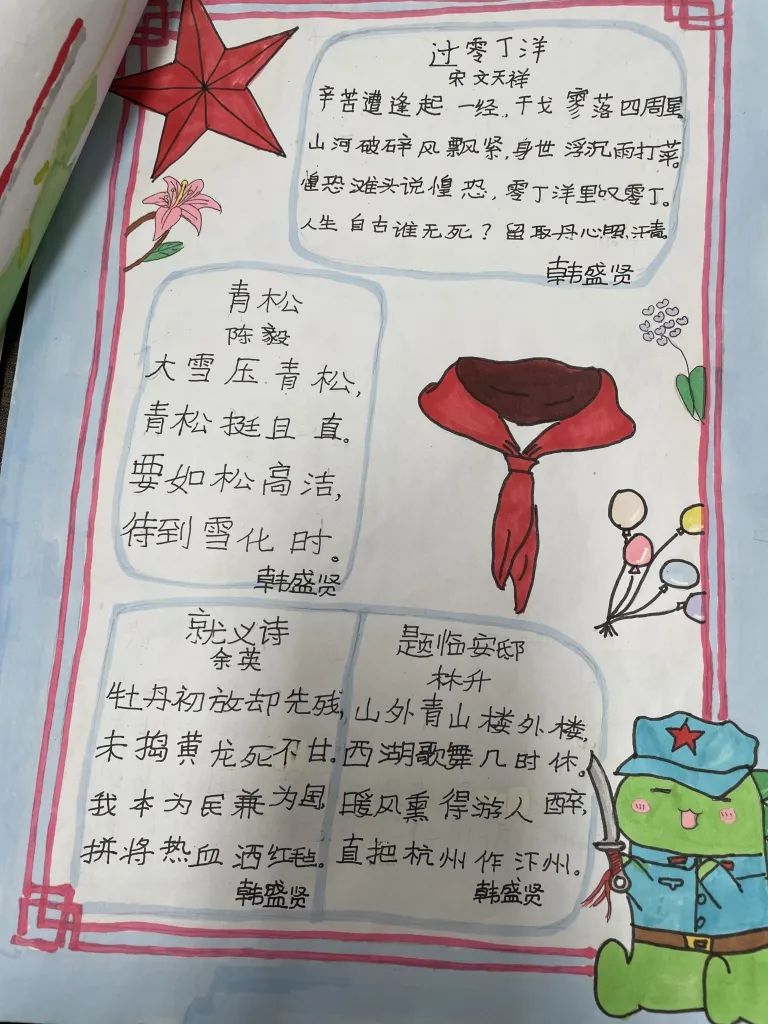 过零丁洋
宋 文天祥
辛苦遭逢起一经,干戈寥落四周星
山河破碎风飘紧,身世浮沉雨打萍。
惶恐滩头说惶恐,零丁洋里叹零丁。
人生自古谁无死?留取丹心照汗青。
韩盛贤
青松
陈毅
大雪压青松,
青松挺且直。
要如松高洁,
待到雪化时。
韩盛贤
就义诗
余英
牡丹初放却先残,
未捣黄龙死不甘。
我本为民兼为国,
拼将热血洒红毡。
韩盛贤
题临安邸
林升
山外青山楼外楼,
西湖歌舞几时休。
暖风熏得游人醉,
直把杭州作汴州。
韩盛贤